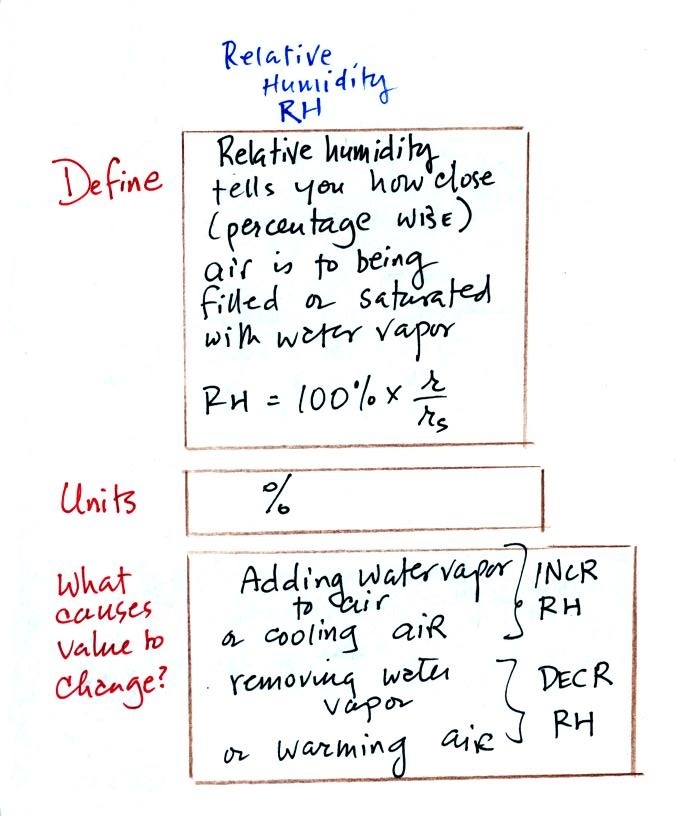 Relative
Humidity
RH
Define
Relative humidity
tells you how close
(percentage WISE)
air is to being
filled or saturated
with water vapor
RH = 100% x r/rs
Units
%
What
causes
value to
change?
Adding water vapor
to air
or cooling air
INCR
RH
removing water
vapor
or warming air
DECR
RH